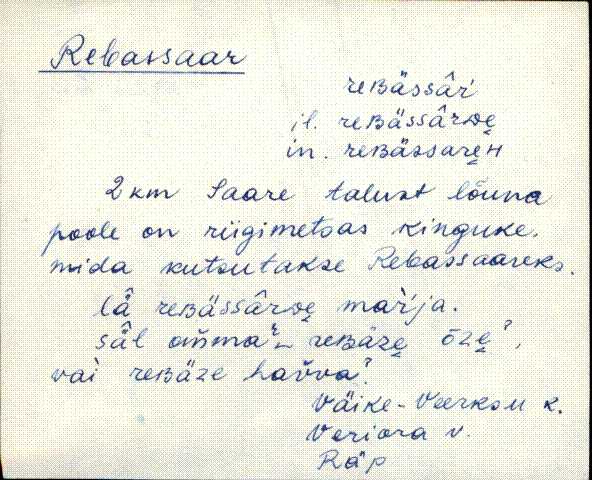 Rebassaar
reʙässâŕ
il. reʙässârᴅę
in. reʙässaręH
2 km Saare talust lõuna
poole on riigimetsas kinguke,
mida kutsutakse Rebassaareks.
lâ reʙässârᴅę maŕja.
säl reʙäzę ōzęˀ,
vai reʙäze havvaˀ.
Väike-Veerksu k.
Veriora v.
Räp